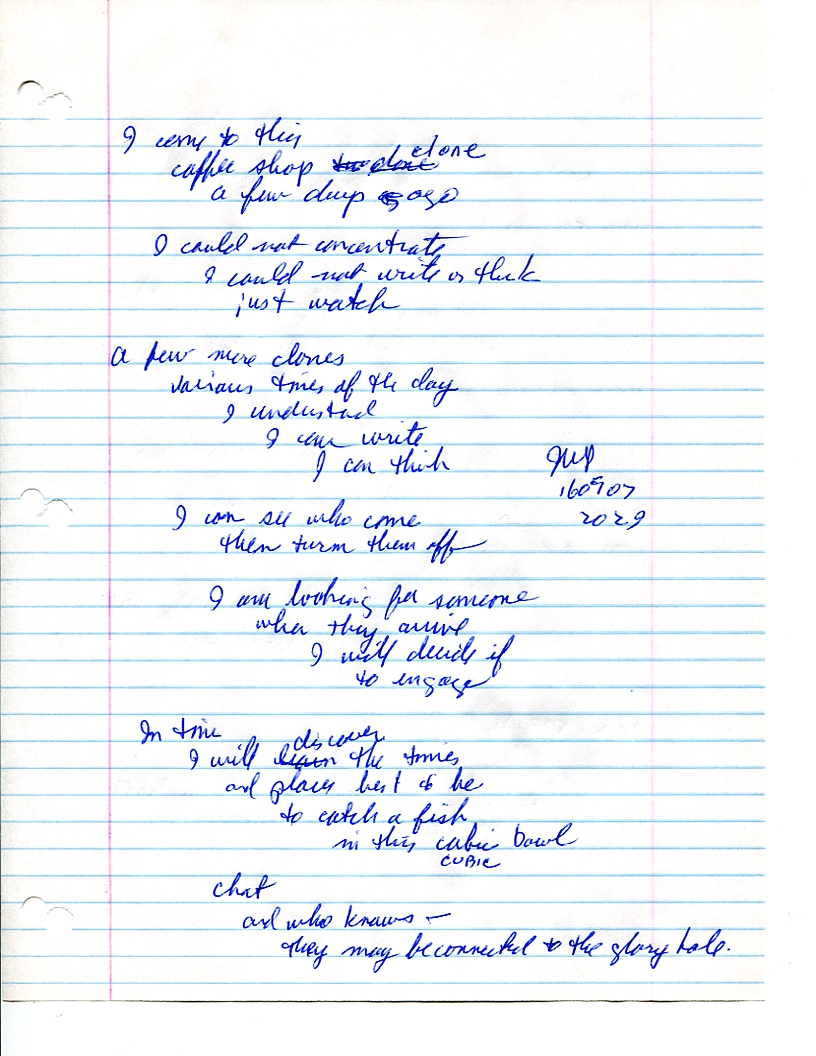 I come to this
coffee shop to clone clone
a few days ago
I could not concentrate
I could not write or think
just watch
A few more clones
various times of the day
I understand
I can write
I can think
160907
2029
I can see who come
then turn them off
I am looking for someone
when they arrive
I will decide if
to engage
In time
discover
I will learn the times
and places best to be
to catch a fish
in this cubic bowl
CUBIC
chat
and who knows –
they may be connected to the glory hole.